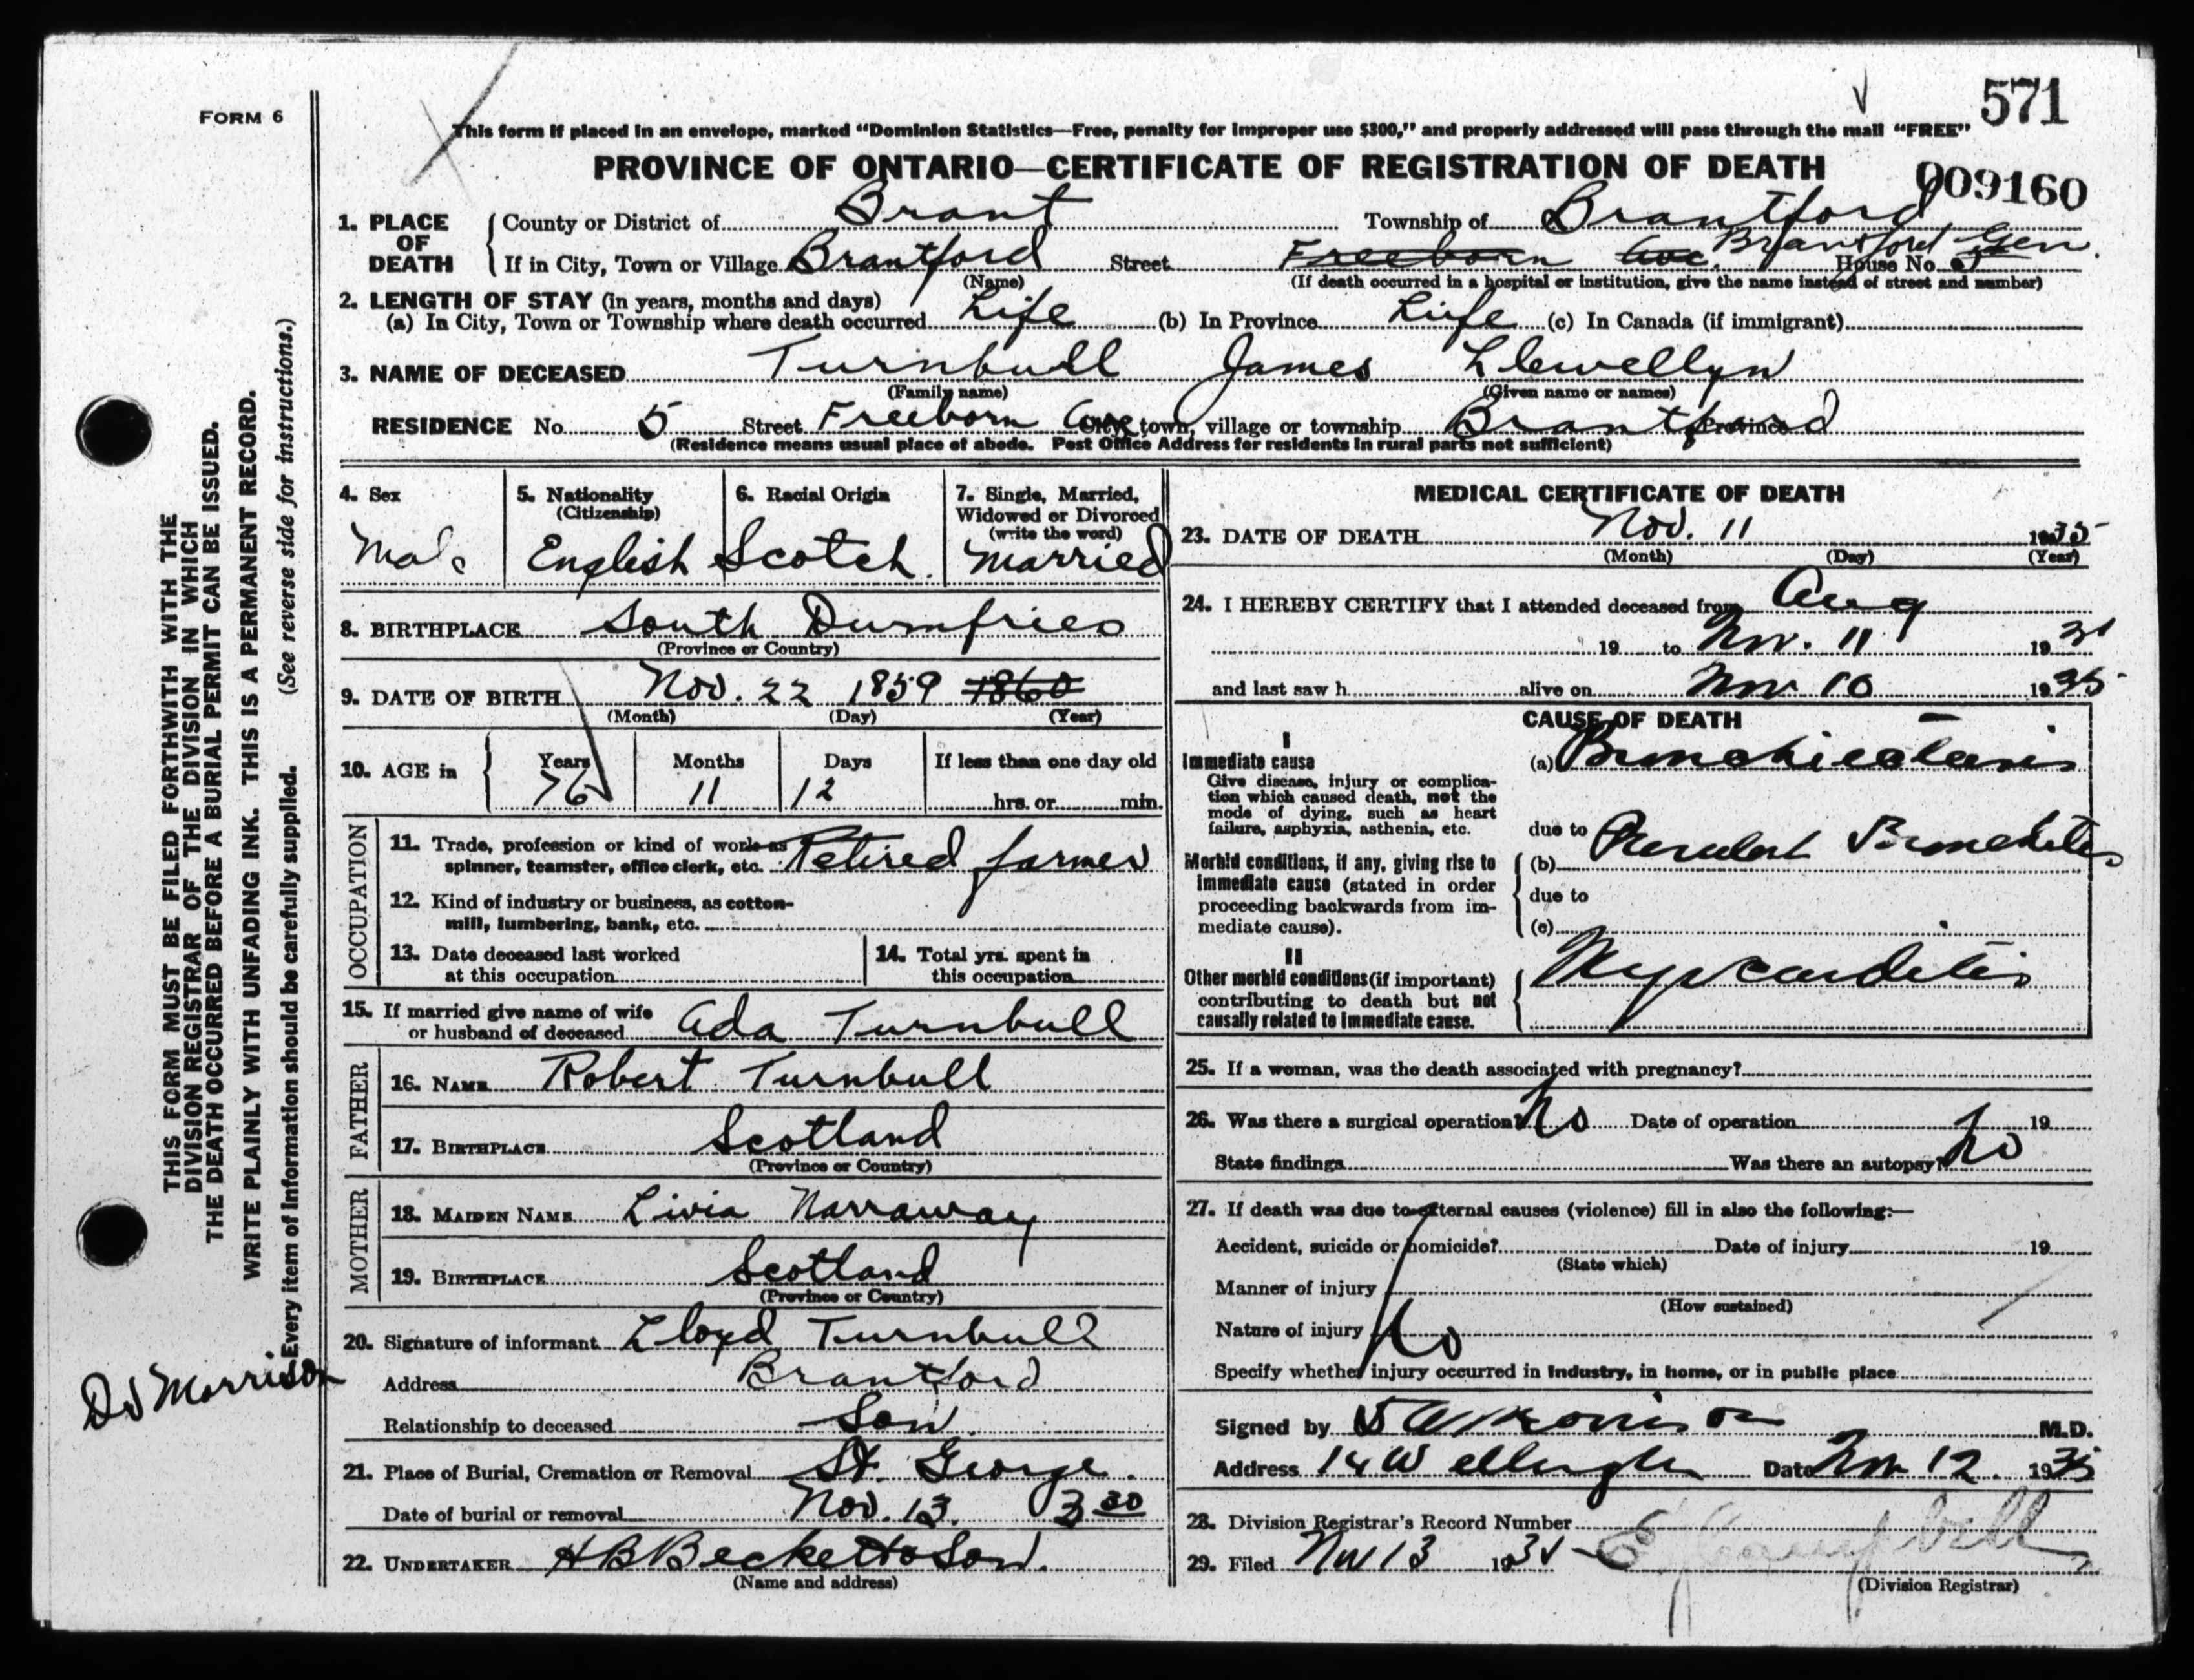 571
FORM 6
This form if placed in an envelope, marked "Dominion Statistics—Free, penalty for improper use $300," and properly addressed will pass through the mail "FREE"
PROVINCE OF ONTARIO—CERTIFICATE OF REGISTRATION OF DEATH
009160
1. PLACE OF DEATH
County or District of Brant Township of Brantford
If in City, Town or Village Brantford Street Freeborn Ave. Brantford Gen. House No. 5
(Name) (If death occurred in a hospital or institution, give the name instead of street and number)
2. LENGTH OF STAY (in years, months and days)
(a) In City, Town or Township where death occurred Life (b) In Province Life (c) In Canada (if immigrant)
3. NAME OF DECEASED Turnbull James Llewellyn
(Family name) (Given name or names)
RESIDENCE No. 5 Street Freeborn Ave City, town, village or township Brantford Province
(Residence means usual place of abode. Post Office Address for residents in rural parts not sufficient)
4. Sex
Male
5. Nationality
(Citizenship)
English
6. Racial Origin
Scotch
7. Single, Married,
Widowed or Divorced
(write the word)
Married
8. BIRTHPLACE South Dumfries
(Province or Country)
9. DATE OF BIRTH Nov. 22 1859 1860
(Month) (Day) (Year)
10. AGE in
Years Months Days If less than one day old
76 11 12 hrs. or min.
OCCUPATION
11. Trade, profession or kind of work as
spinner, teamster, office clerk, etc. Retired farmer
12. Kind of industry or business, as cotton-
mill, lumbering, bank, etc.
13. Date deceased last worked
at this occupation
14. Total yrs. spent in
this occupation
15. If married give name of wife
or husband of deceased Ada Turnbull
FATHER
16. NAME Robert Turnbull
17. BIRTHPLACE Scotland
(Province or Country)
MOTHER
18. MAIDEN NAME Livia Narraway
19. BIRTHPLACE Scotland
(Province or Country)
20. Signature of informant Lloyd Turnbull
Address Brantford
Relationship to deceased Son
21. Place of Burial, Cremation or Removal St. George.
Date of burial or removal Nov. 13. 3 30
22. UNDERTAKER H B Beckett & Son.
(Name and address)
MEDICAL CERTIFICATE OF DEATH
23. DATE OF DEATH Nov. 11 1935
(Month) (Day) (Year)
24. I HEREBY CERTIFY that I attended deceased from Aug
19 to Nov. 11 19
and last saw h alive on Nov 10 1935
CAUSE OF DEATH
I
Immediate cause
Give disease, injury or complica-
tion which caused death, not the
mode of dying, such as heart
failure, asphyxia, asthenia, etc.
(a) Bronchiectasis
due to
Morbid conditions, if any, giving rise to
immediate cause (stated in order
proceeding backwards from im-
mediate cause).
(b) Purulent Bronchitis
due to
(c)
II
Other morbid conditions (if important)
contributing to death but not
causally related to immediate cause.
Myocarditis
25. If a woman, was the death associated with pregnancy?
26. Was there a surgical operation? No Date of operation 19
State findings Was there an autopsy? No
27. If death was due to external causes (violence) fill in also the following:—
Accident, suicide or homicide? Date of injury 19
(State which)
Manner of injury
(How sustained)
Nature of injury No
Specify whether injury occurred in industry, in home, or in public place
Signed by Morrison M.D.
Address 14 Wellington Date Nov 12. 1935
28. Division Registrar's Record Number
29. Filed Nov 13 19 E. Campbell
(Division Registrar)
THIS FORM MUST BE FILED FORTHWITH WITH THE
DIVISION REGISTRAR OF THE DIVISION IN WHICH
THE DEATH OCCURRED BEFORE A BURIAL PERMIT CAN BE ISSUED.
WRITE PLAINLY WITH UNFADING INK. THIS IS A PERMANENT RECORD.
Every item of information should be carefully supplied. (See reverse side for instructions.)
Morrison